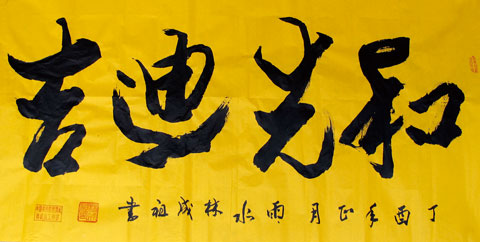 和光迪吉
丁酉年正月雨水林成祖書